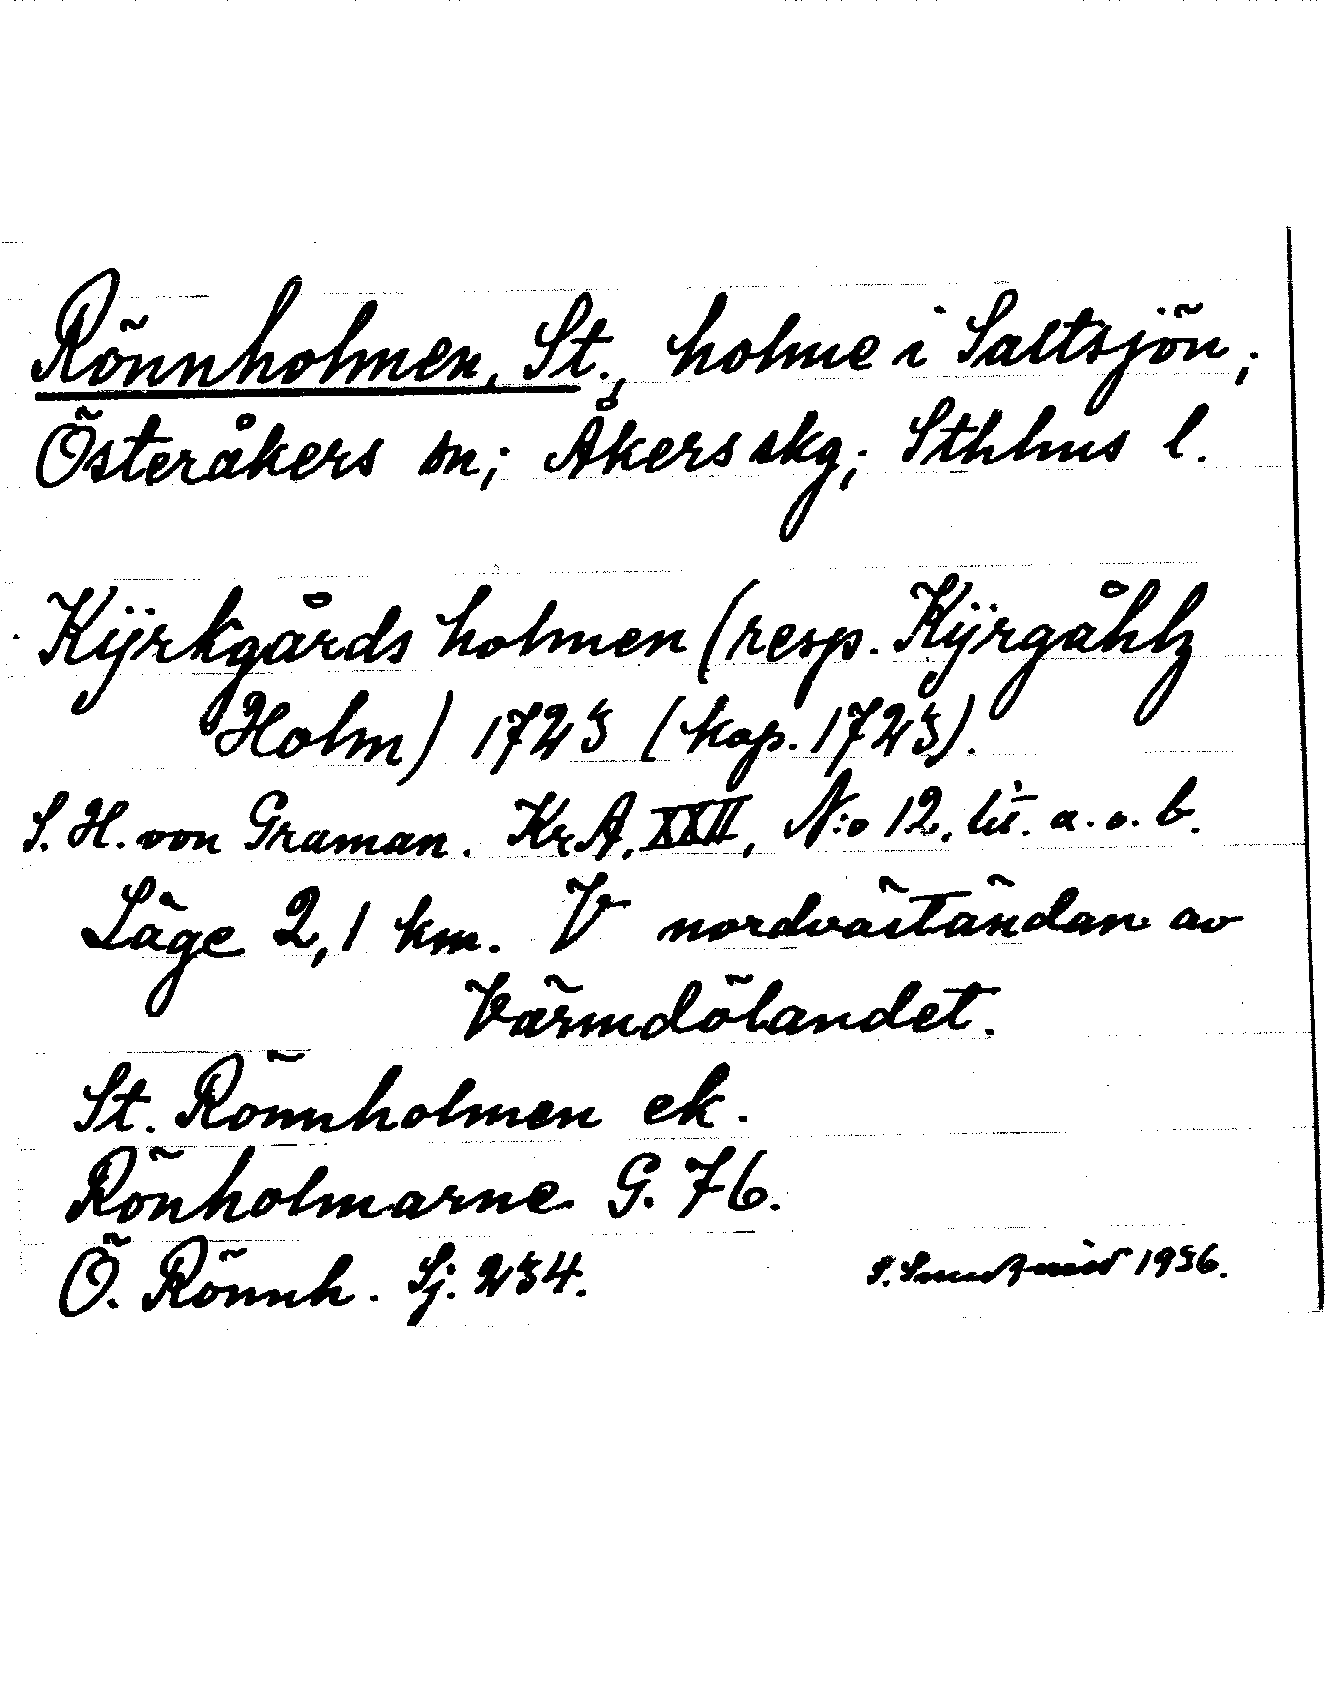 Rönnholmen, St., holme i Saltsjön;
Österåkers sn; Åkers skg; Sthlms l.
Kÿrkgårds holmen (resp. Kÿrgåhlz
Holm) 1723 (kop. 1723).
S. H. von Graman. KrA. XXII, N:o 12, lit. a. o. b.
Läge 2,1 km. V nordväständan av
Värmdölandet.
St. Rönnholmen ek.
Rönholmarne G. 76.
Ö. Rönnh. Sj. 234.
1936.